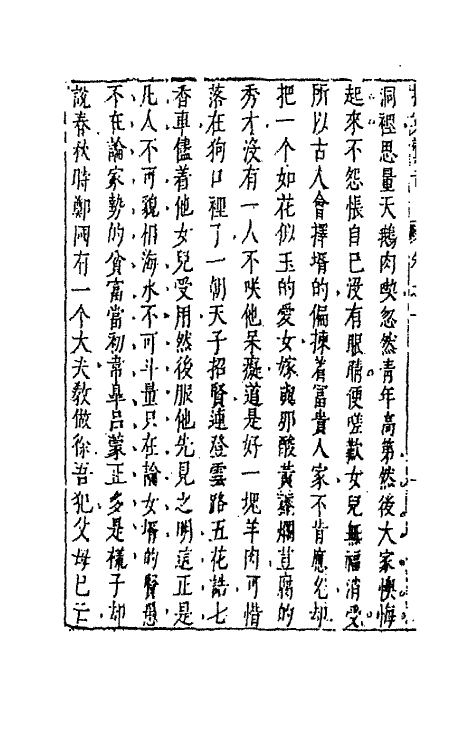 洞裡思量天鵝肉吃忽然青年高第然後大家懊悔
起來不怨悵自己沒有眼睛便嗟歎女兒無福消受
所以古人會擇壻的偏揀着富貴人家不肯應允却
把一个如花似玉的愛女嫁與那酸黃虀爛荳腐的
秀才沒有一人不咲他呆癡道是好一塊羊肉可惜
落在狗口裡了一朝天子招賢連登雲路五花誥七
香車儘着他女兒受用然後服他先見之明這正是
凢人不可貌相海水不可斗量只在論女壻的賢愚
不在論家勢的貧富當初韋臯吕蒙正多是樣子却
說春秋時鄭國有一个大夫敎做徐吾犯父母已亡